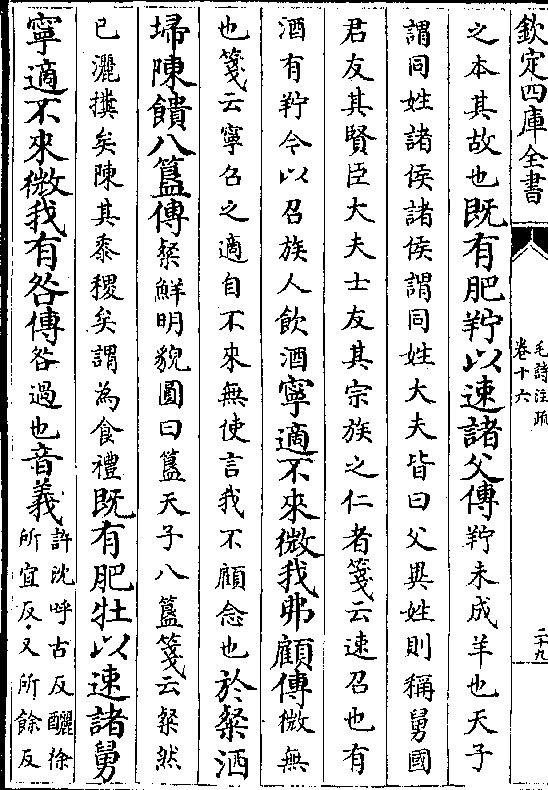 欽定四庫全書
毛詩注疏
卷十六
二十九
之本其故也既有肥羜以速諸父傳羜未成羊也天子
謂同姓諸侯諸侯謂同姓大夫皆曰父異姓則稱舅國
君友其賢臣大夫士友其宗族之仁者箋云速召也有
酒有羜令以召族人飲酒寧適不來微我弗顧傳微無
也箋云寧召之適自不來無使言我不顧念也於粲洒
埽陳饋八簋傳粲鮮明貌圓曰簋天子八簋箋云粲然
已灑㩓矣陳其黍稷矣謂為食禮既有肥牡以速諸舅
寧適不來微我有咎傳咎過也音義
許沈呼古反釃徐
所宜反又所餘反